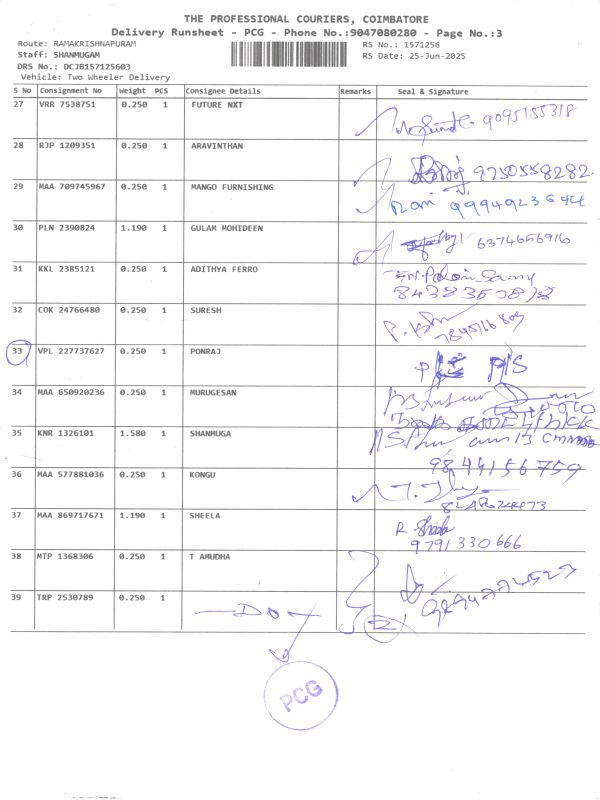 THE PROFESSIONAL COURIERS, COIMBATORE
Delivery Runsheet - PCG - Phone No.:9047080280 - Page No.:3
Route: RAMAKRISHNAPURAM RS No.: 1571256
Staff: SHANMUGAM RS Date: 25-Jun-2025
DRS No.: DCJB157125603
Vehicle: Two Wheeler Delivery
S No Consignment No Weight PCS Consignee Details Remarks Seal & Signature
27 VRR 7538751 0.250 1 FUTURE NXT 9095155318
28 RJP 1209351 0.250 1 ARAVINTHAN 9750558282
29 MAA 709745967 0.250 1 MANGO FURNISHING Rani
30 PLN 2390824 1.190 1 GULAM MOHIDEEN 6374656916
31 KKL 2385121 0.250 1 ADITHYA FERRO
32 COK 24766480 0.250 1 SURESH
33 VPL 227737627 0.250 1 PONRAJ P/S
34 MAA 650920236 0.250 1 MURUGESAN
35 KNR 1326101 1.580 1 SHANMUGA 9844156759
36 MAA 577881036 0.250 1 KONGU
37 MAA 869717671 1.190 1 SHEELA R. 9791330666
38 MTP 1368306 0.250 1 T AMUDHA
39 TRP 2530789 0.250 1 DO
PCG